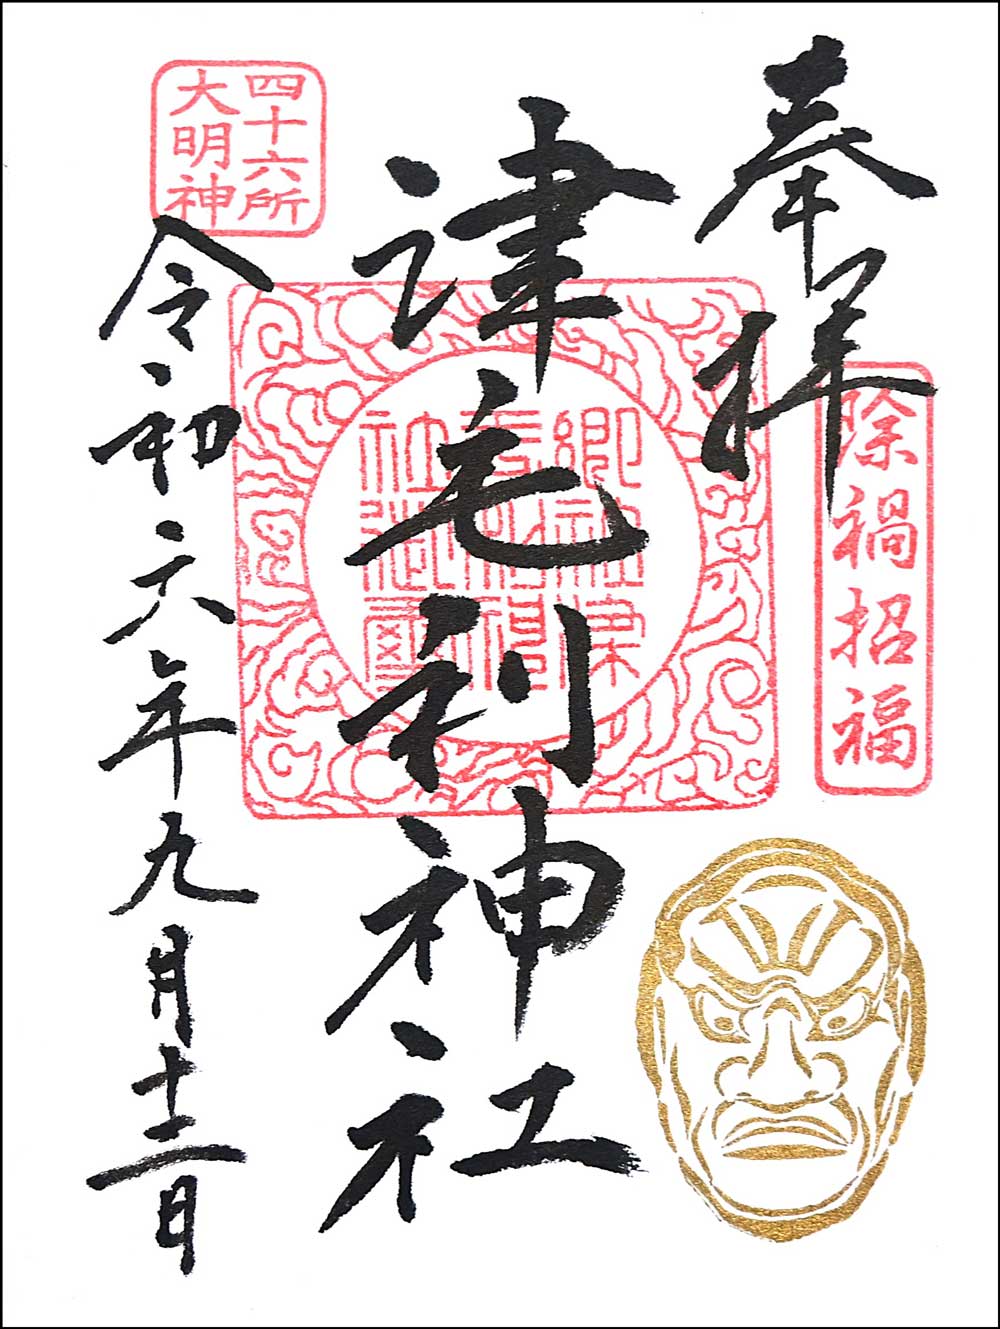 奉拝
除禍招福
津毛利神社
四十六所
大明神
令和六年九月十二日